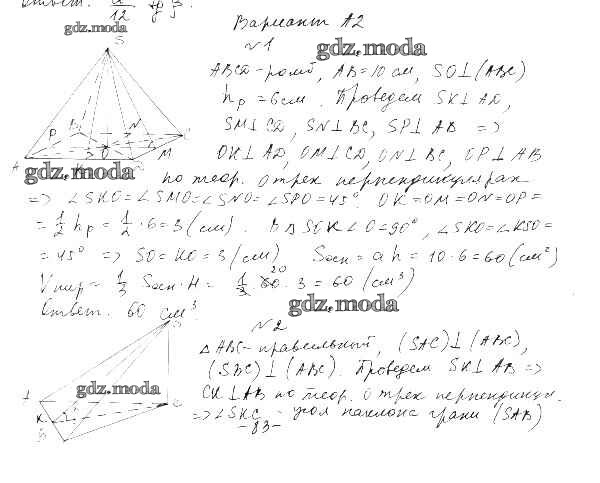 Ответ: a³/12
gdz.moda
Вариант А2
№1
gdz.moda
ABCD - ромб, AB = 10 см, SO ⊥ (ABC)
hр = 6 см. Проведем SK ⊥ AD,
SM ⊥ CD, SN ⊥ BC, SP ⊥ AB =>
OK ⊥ AD, OM ⊥ CD, ON ⊥ BC, OP ⊥ AB
gdz.moda
по теор. о трех перпендикулярах
=> ∠SKO = ∠SMO = ∠SNO = ∠SPO = 45°. OK = OM = ON = OP =
= 1/2 hр = 1/2 · 6 = 3 (см). В ΔSOK ∠O = 90°, ∠SKO = ∠KSO =
= 45° => SO = KO = 3 (см) Sосн = ah = 10 · 6 = 60 (см²)
Vпир = 1/3 Sосн · H = 1/3 · 60 · 3 = 60 (см³)
20
Ответ: 60 см³.
gdz.moda
№2
ΔABC - правильный, (SAC) ⊥ (ABC),
(SBC) ⊥ (ABC). Проведем SK ⊥ AB =>
gdz.moda
CK ⊥ AB по теор. о трех перпендикул.
=> ∠SKC - угол наклона грани (SAB)
-83-
S
P
B
N
C
A
K
O
M
S
K
B
C